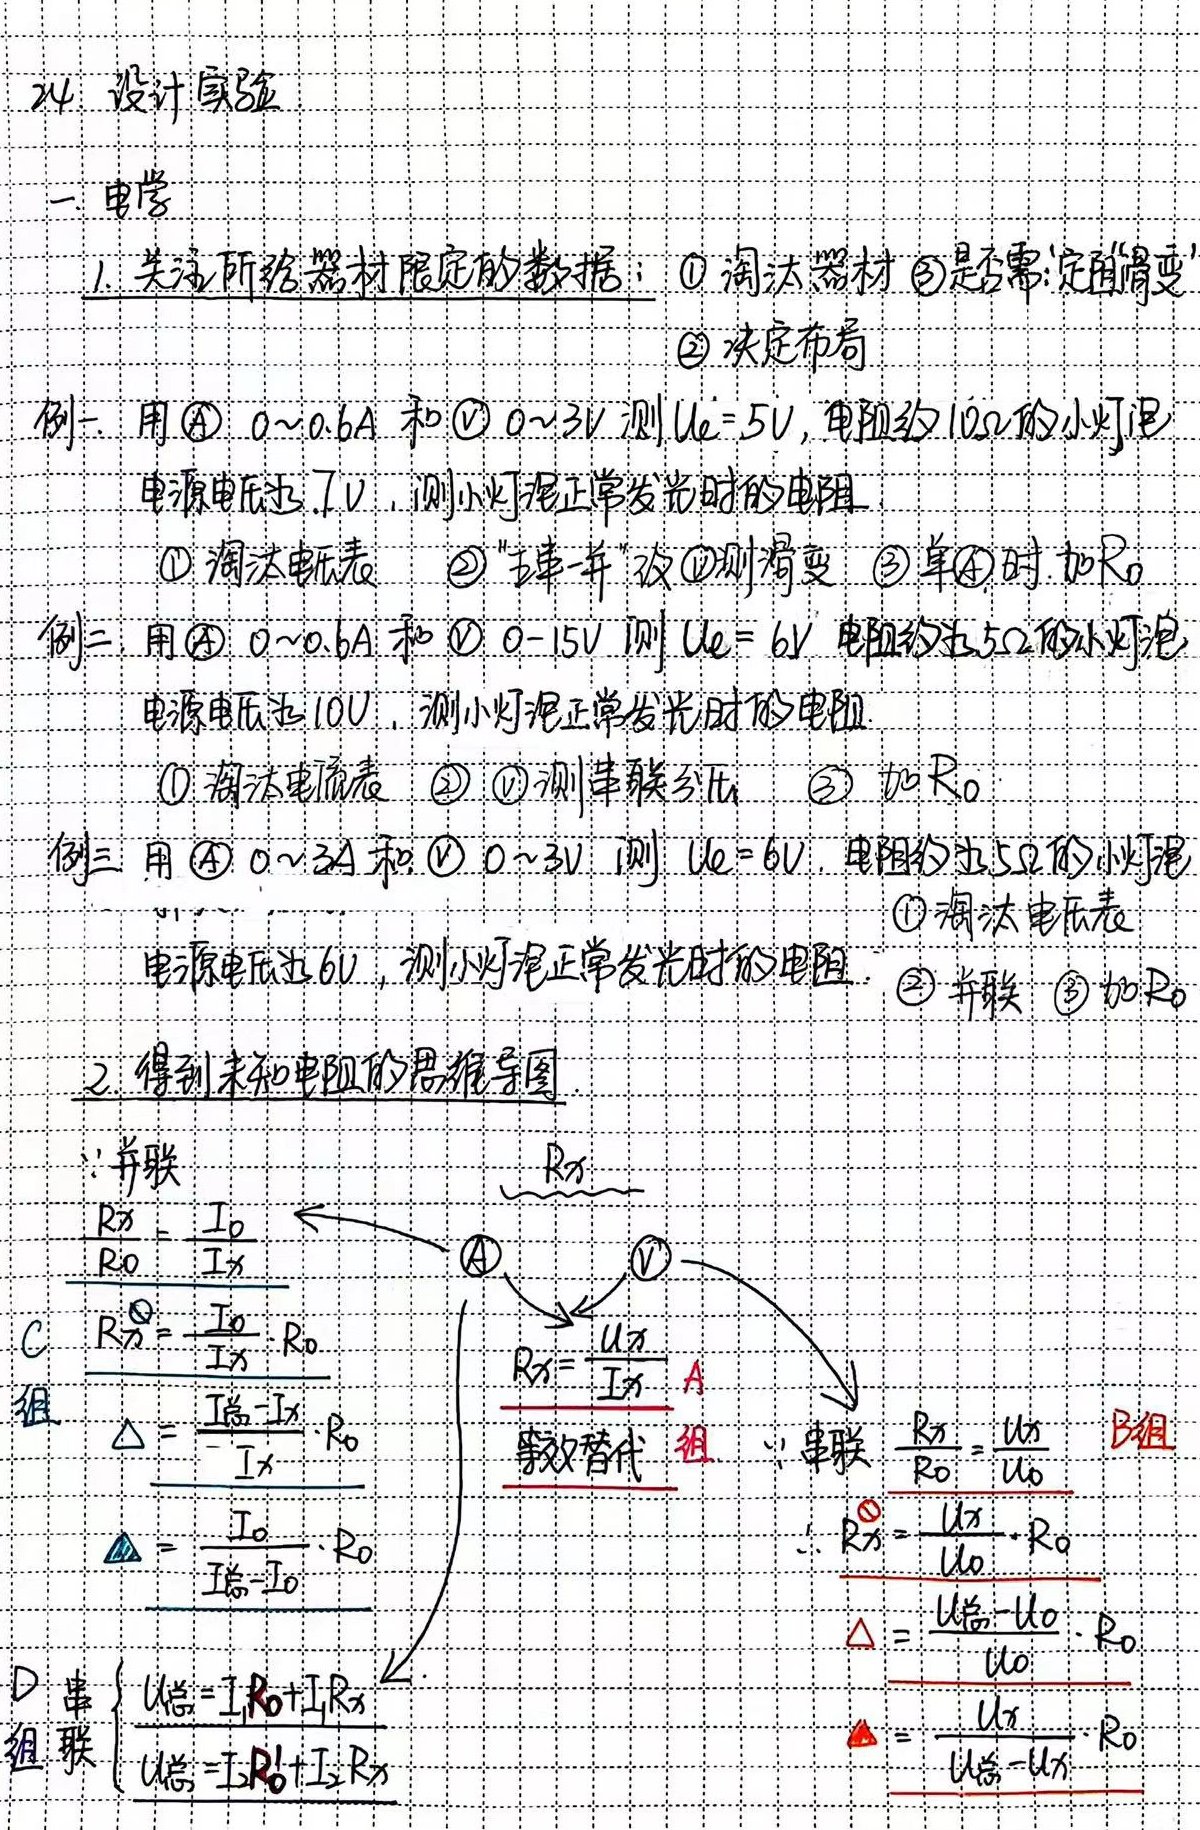 24 设计实验
一. 电学
1. 关注所给器材限定的数据: ① 淘汰器材 ③是否需“定阻”“滑变”
② 决定布局
例一. 用Ⓐ 0~0.6A 和Ⓥ 0~3V 测 Ue=5V, 电阻约10Ω的小灯泡
电源电压为7V, 测小灯泡正常发光时的电阻.
① 淘汰电压表 ② “五串一并”改Ⓥ测滑变 ③ 单Ⓐ时.加R0
例二. 用Ⓐ 0~0.6A 和Ⓥ 0-15V 测 Ue=6V 电阻约为5Ω的小灯泡
电源电压为10V, 测小灯泡正常发光时的电阻.
① 淘汰电流表 ② Ⓥ测串联分压 ③ 加R0
例三 用Ⓐ 0~3A 和Ⓥ 0~3V 测 Ue=6V. 电阻约为5Ω的小灯泡
① 淘汰电压表
电源电压为6V, 测小灯泡正常发光时的电阻.
② 并联 ③ 加R0
2. 得到未知电阻的思维导图.
∵并联
Rx
Rx/R0 = I0/Ix
Ⓐ Ⓥ
C组
Rx = I0/Ix · R0
△ = I总-Ix/Ix · R0
▲ = I0/I总-I0 · R0
Rx = Ux/Ix A组
等效替代
∵串联 Rx/R0 = Ux/U0 B组
∴ Rx = Ux/U0 · R0
△ = U总-U0/U0 · R0
▲ = Ux/U总-Ux · R0
D组 串联
U总=I1R0+I1Rx
U总=I2R0'+I2Rx